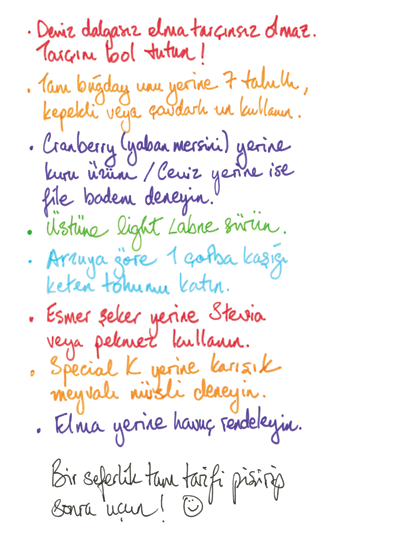 • Deniz dalgasız elma tarçınsız olmaz.
Tarçını bol tutun!
• Tam buğday unu yerine 7 tahıllı,
kepekli veya çavdarlı un kullanın.
• Cranberry (yaban mersini) yerine
kuru üzüm / Ceviz yerine ise
file badem deneyin.
• Üstüne light Labne sürün.
• Arzuya göre 1 çorba kaşığı
keten tohumu katın.
• Esmer şeker yerine Stevia
veya pekmez kullanın.
• Special K yerine karışık
meyvalı müsli deneyin.
• Elma yerine havuç rendeleyin.
Bir seferlik tam tarifi pişirip
sonra uçun! ☺